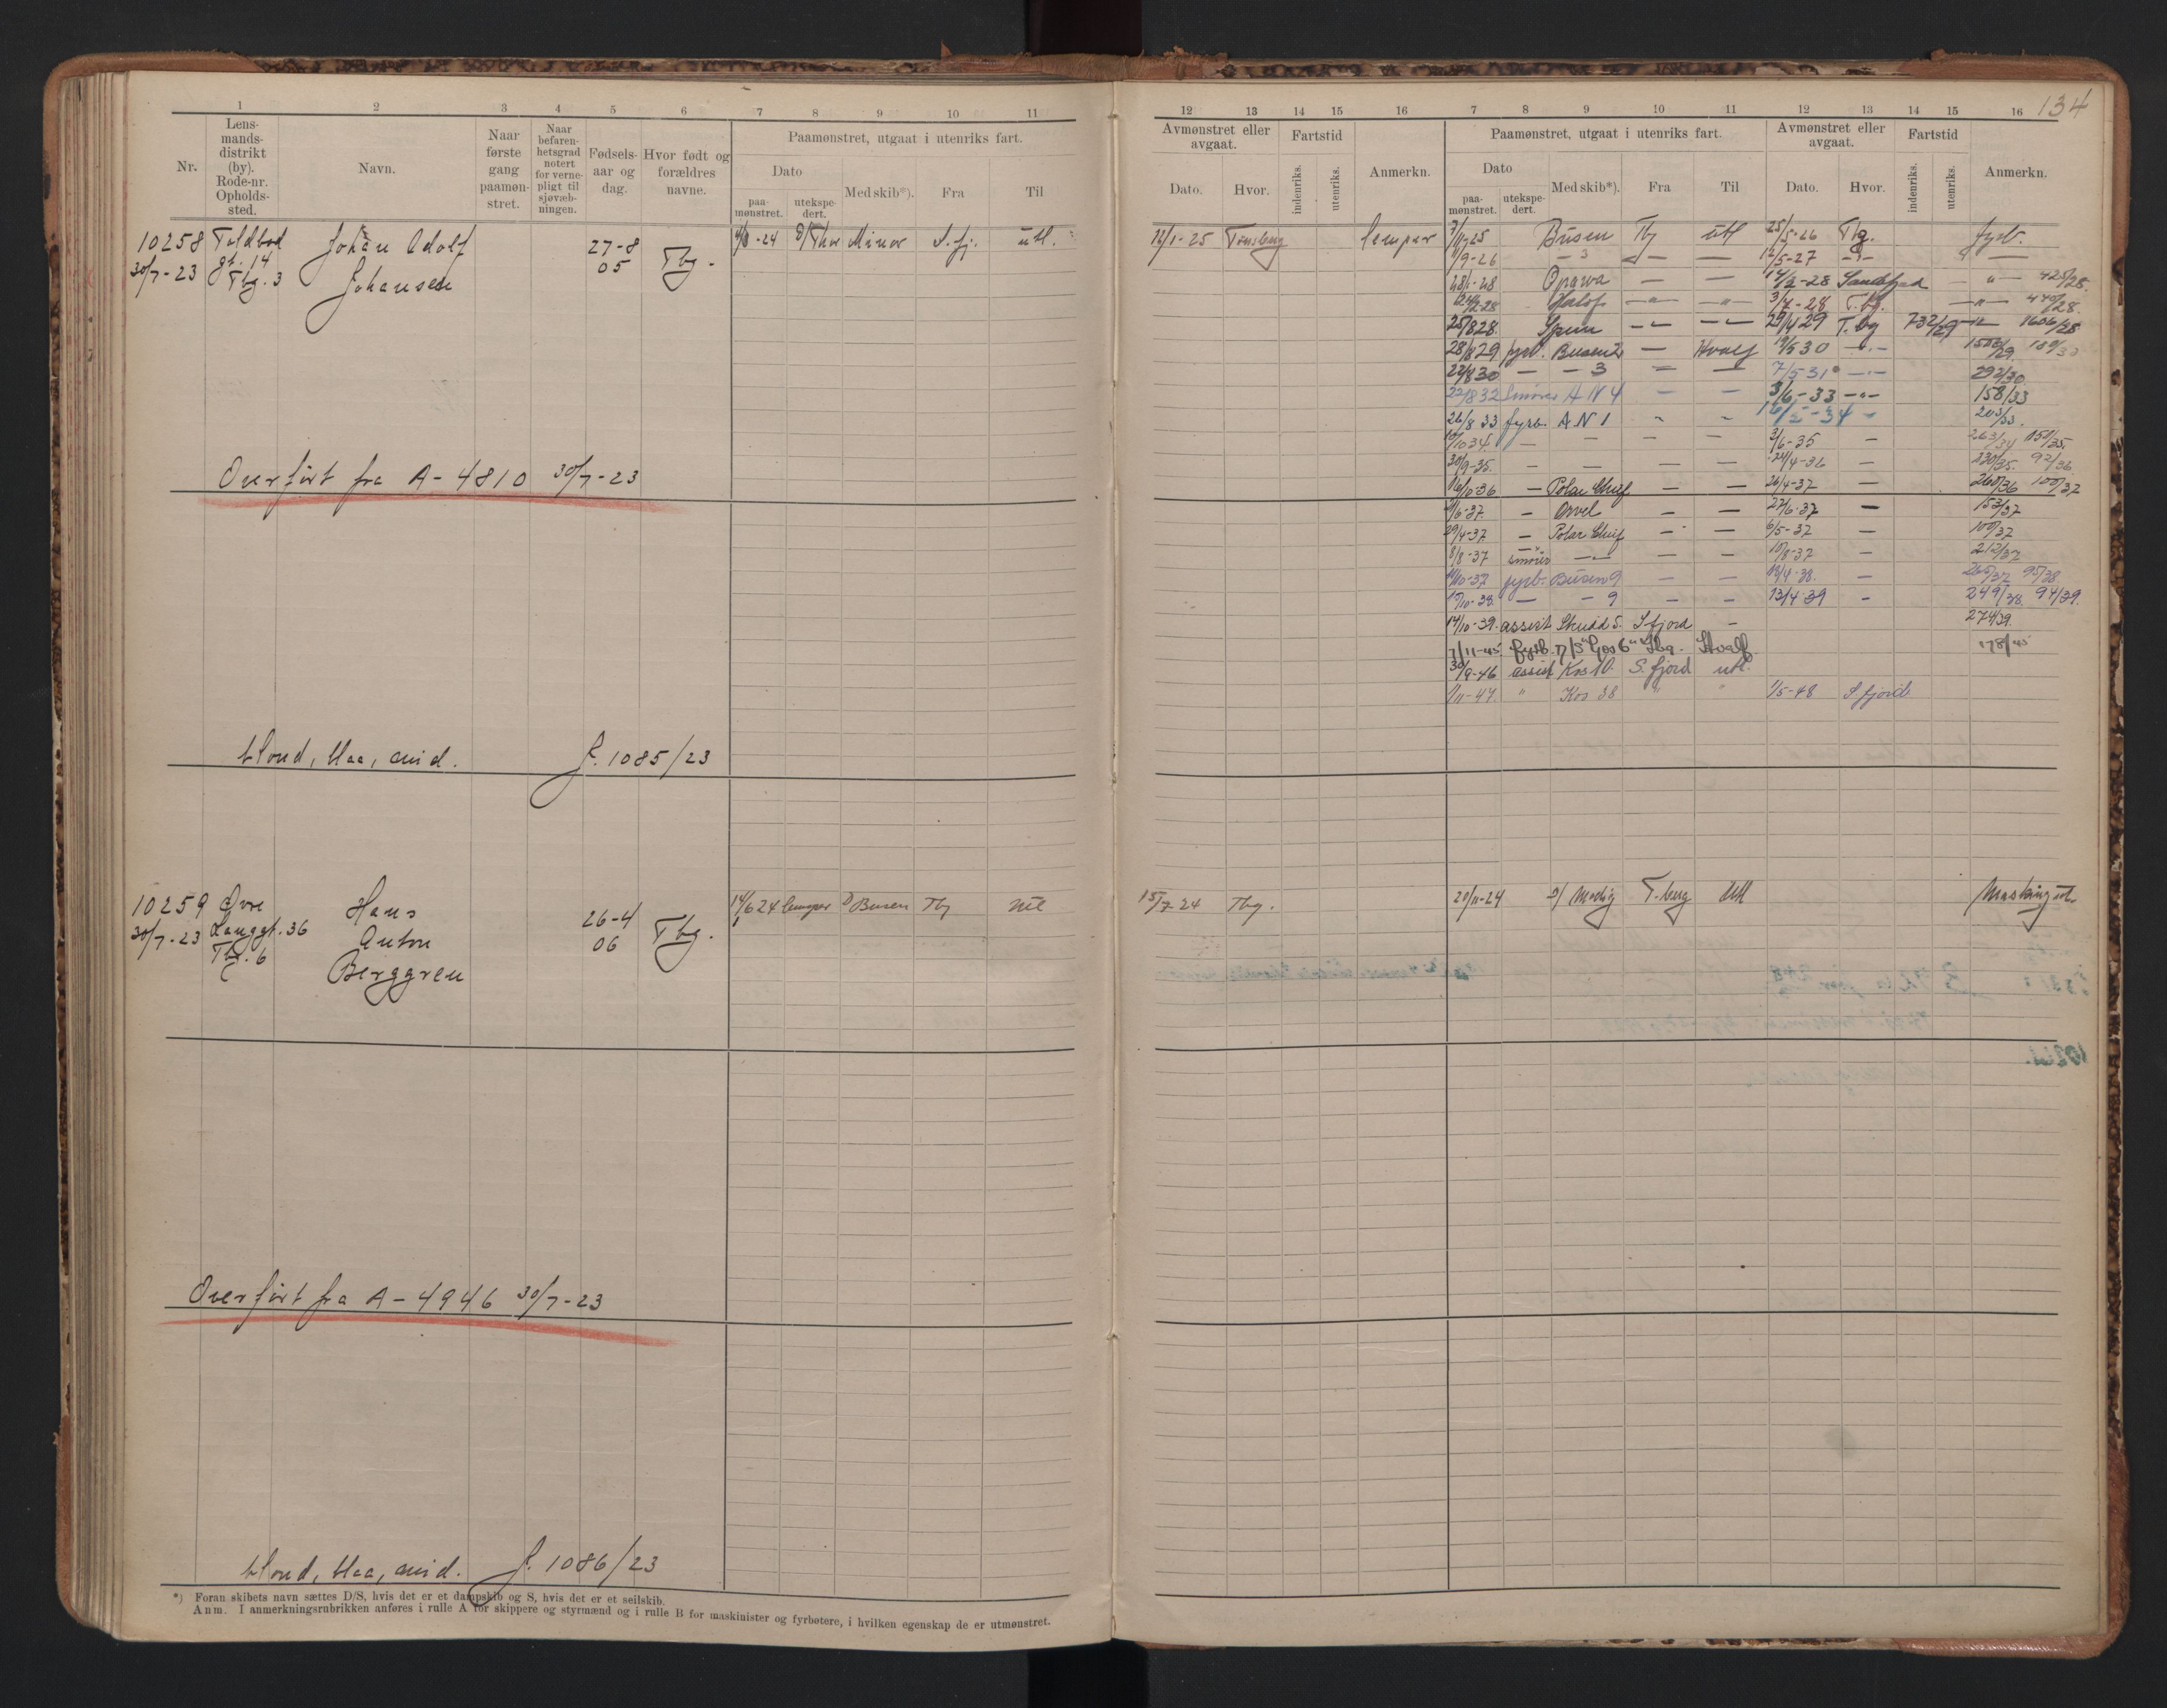 134
1 2 3 4 5 6 7 8 9 10 11
Nr.
Lens-
mands-
distrikt
(by).
Rode-nr.
Opholds-
sted.
Navn.
Naar
første
gang
paamøn-
stret.
Naar
befaren-
hetsgrad
notert
for verne-
pligt til
sjøvæb-
ningen.
Fødsels-
aar og
dag.
Hvor født og
forældres
navne.
Paamønstret, utgaat i utenriks fart.
Dato
paa-
mønstret.
utekspe-
dert.
Med skib*).
Fra
Til
12 13 14 15 16 7 8 9 10 11 12 13 14 15 16
Avmønstret eller
avgaat.
Dato.
Hvor.
Fartstid
indenriks.
utenriks.
Anmerkn.
Paamønstret, utgaat i utenriks fart.
Dato
paa-
mønstret.
utekspe-
dert.
Med skib*).
Fra
Til
Avmønstret eller
avgaat.
Dato.
Hvor.
Fartstid
indenriks.
utenriks.
Anmerkn.
10258 Toldbod
gt. 14
30/7-23 Tbg. 3
Johan Adolf
Johansen
27-8
05
Tbg.
D/ Thor Minor S.fj. utl.
12/1-25 Tønsberg lemper
Overført fra A-4810 30/7-23
blond, blaa, mid. J. 1085/23
7/11 25 Busen Tbg utl 25/5-26 Tbg. fyrb.
1/9-26 — 3 — — 12/5-27 —"— —
Oprawa — — 14/2-28 Sandefjord — " — 425/28.
— " — — " — 3/7-28 T.bg. — " — 440/28.
25/8 28. — — 29/4 29 T.bg 732/29 — 1606/28
28/8 29 fyrb. Busen 2 — Hvalf 19/5 30 — " — 150/30
22/8 30 — — 3 — — 7/5-31 — " — 292/30
22/8 32 Smører A N 4 — — 3/6-33 — " — 158/33
26/8 33 fyrb. A N 1 " " 16/5-34 " 203/33.
10/10 34. — — — — 3/6-35 — 263/34 151/35
30/9-35. — — — — 24/4-36 — 230/35. 92/36
16/10-36 — Polar Chief — — 26/4-37 — 260/36 100/37
— Orvel — — 27/6-37 — 153/37
29/4-37 — Polar Chief — — 6/5-37 — 100/37
8/8-37 smører — " — — — 10/8-37 — 212/37
fyrb. Busen 9 — — 13/4-38. — 265/37 95/38
— — 9 — — 13/4-39 — 249/38. 94/39.
14/10-39. assist S.fjord — 274/39.
7/11-45 fyrb. Tbg. Hvalf. 178/45
30/9-46 assist Kos 10. S.fjord utl.
1/11-47 " Kos 38 " " 1/5-48 S.fjord
10259 Øvre
30/7-23 Langgt. 36
Tbg. 6
Hans
Anton
Berggren
26-4
06
Tbg.
14/6 24 lemper D/ Busen Tbg utl
15/7-24 Tbg.
20/11-24 D/ Modig T.berg Utl
Overført fra A-4946 30/7-23
blond, blaa, mid. J. 1086/23
*) Foran skibets navn sættes D/S, hvis det er et dampskib og S, hvis det er et seilskib.
Anm. I anmerkningsrubrikken anføres i rulle A for skippere og styrmænd og i rulle B for maskinister og fyrbøtere, i hvilken egenskap de er utmønstret.